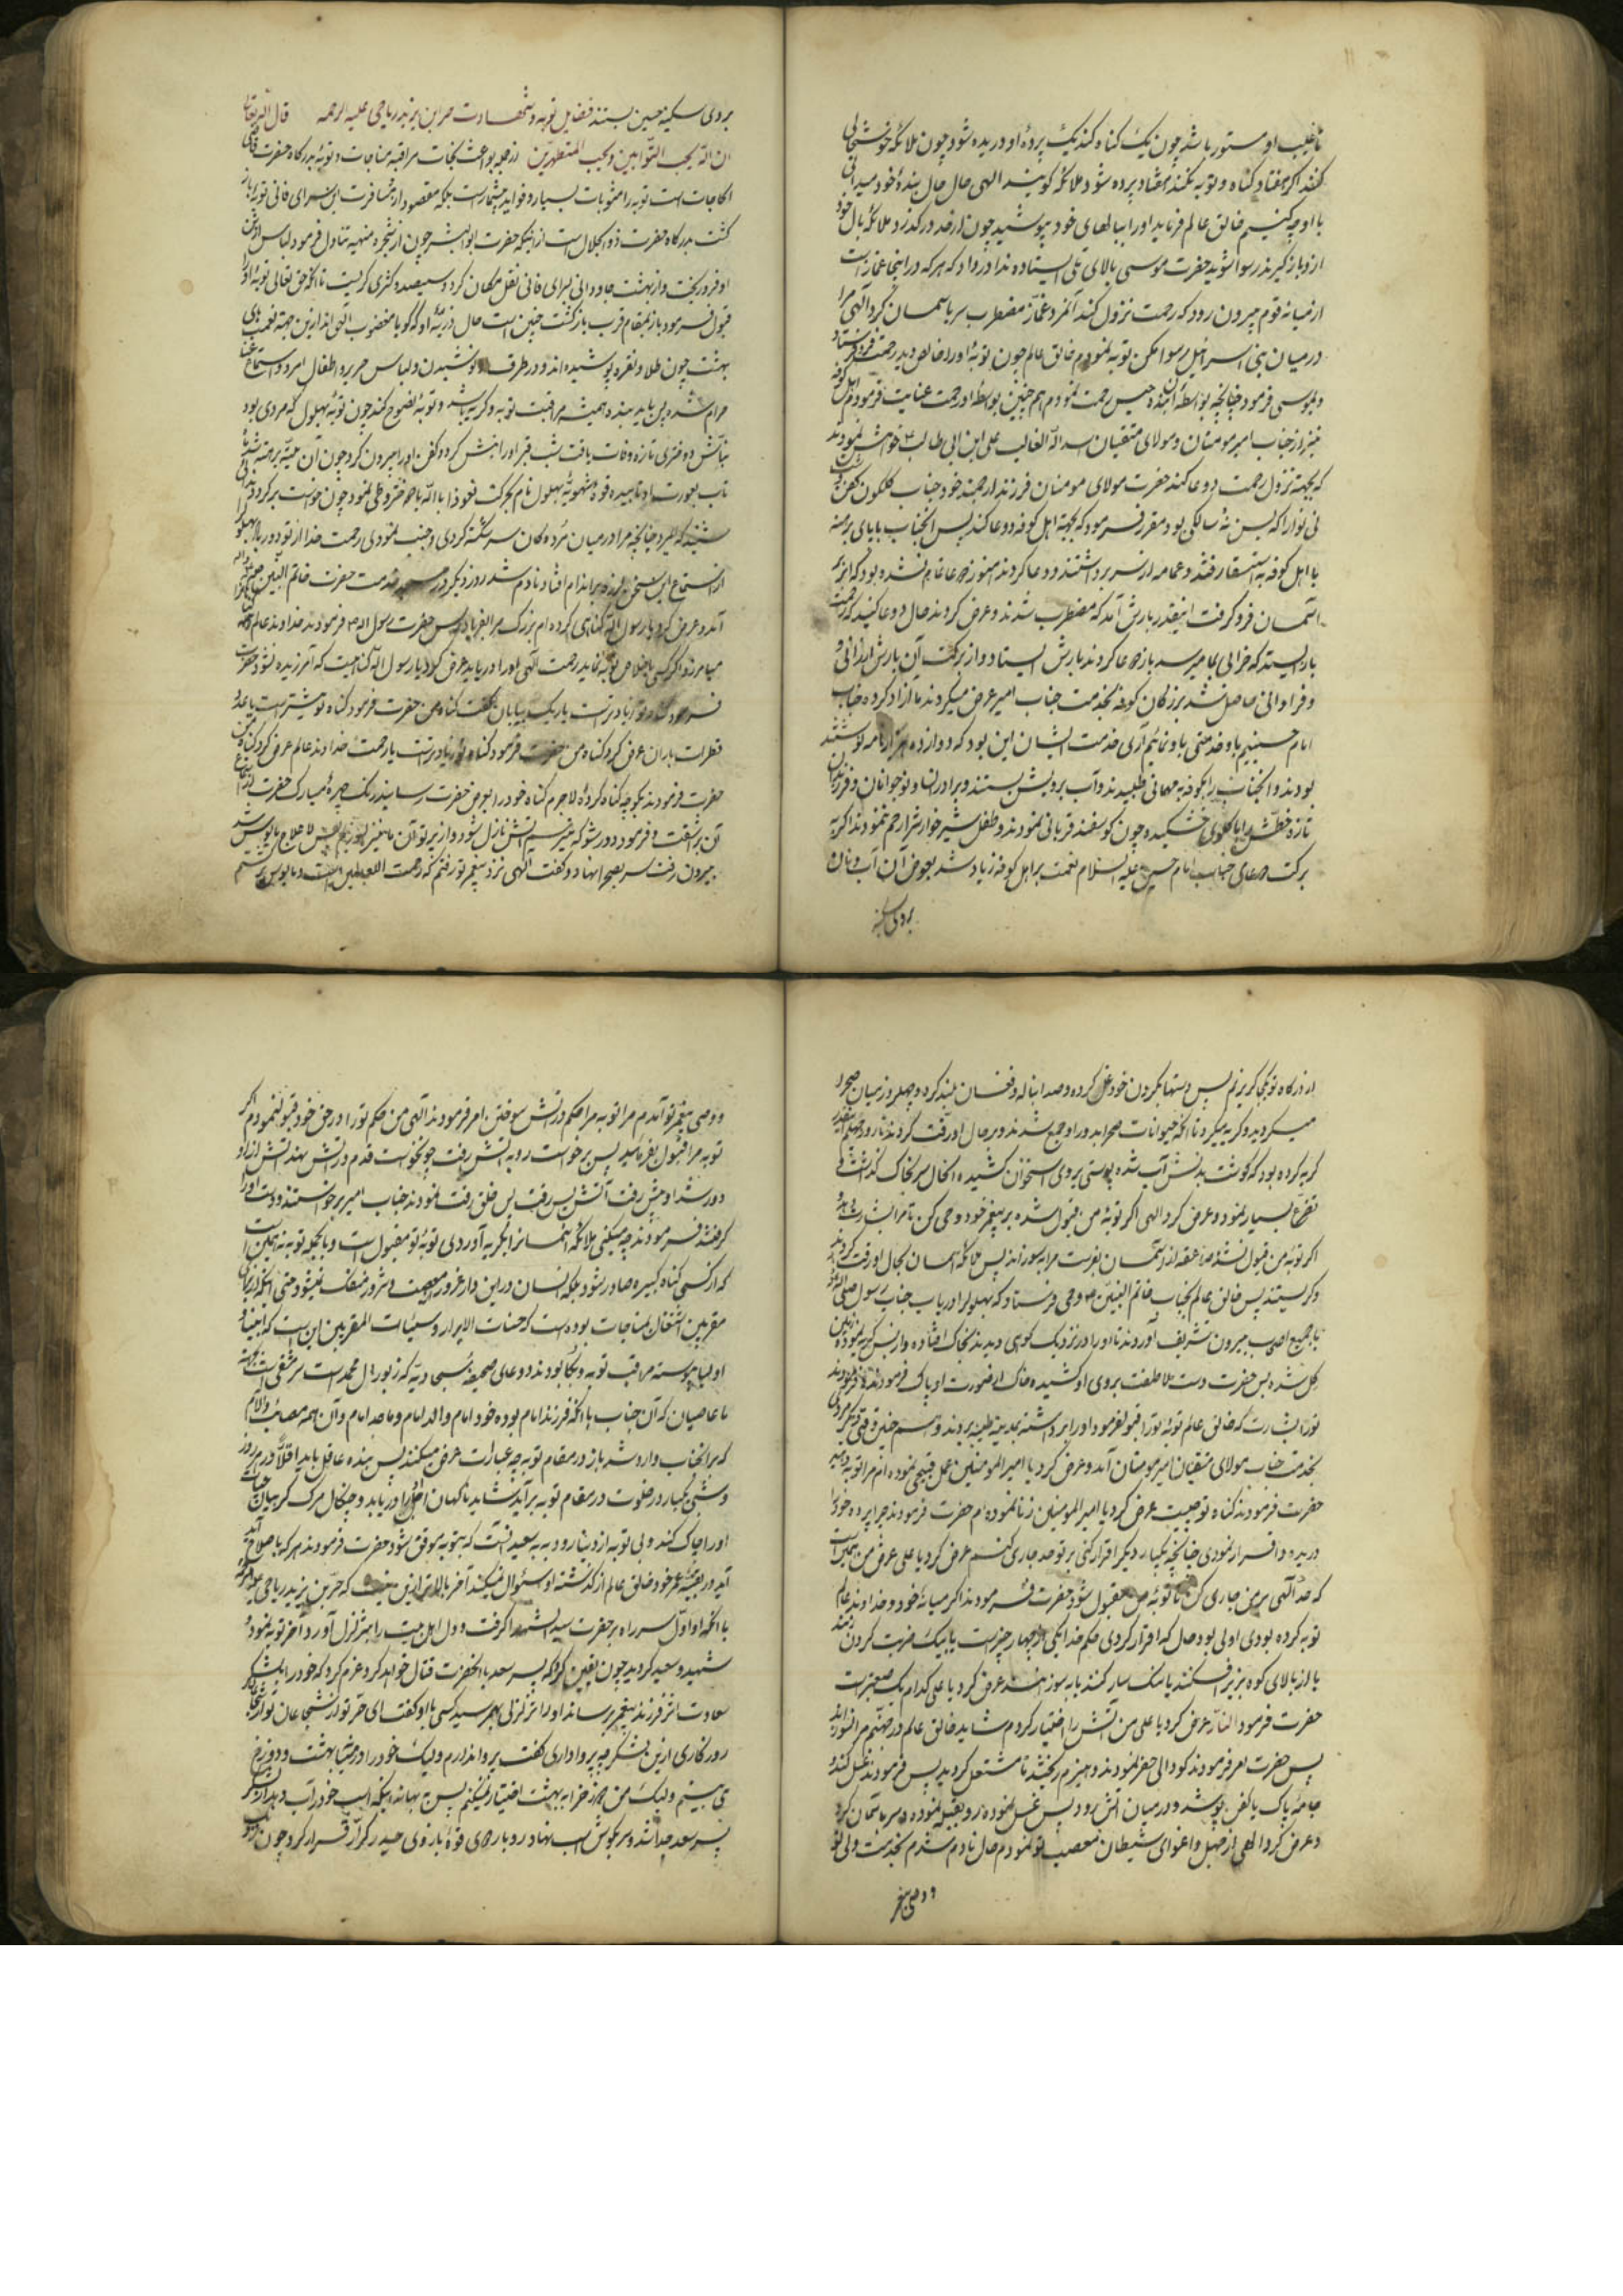 تا غیب او مستور باشد چون یک گناه کند یک پرده او دریده شود چون ملائکه خوشحالی
کنند اگر هفتاد گناه و توبه نکند هفتاد پرده شود ملائکه گویند الهی حال حال بنده خود میدانی
با او چه کنیم خالق عالم فرماید او را ببالهای خود بپوشید چون از حد در گذرد ملائکه بال خود
از و باز گیرند رسوا شوید حضرت موسی بالای تلی ایستاده ندا در داد که هر که در اینجا غماز است
از میانه قوم بیرون رود که رحمت نزول کند آنمرد غماز مضطرب سر باسمان کرد الهی مرا
در میان بنی اسرائیل رسوا مکن توبه نمودم خالق عالم چون توبه او را خالص دید رحمت فرو فرستاد
و بموسی فرمود چنانچه بواسطه این بنده حبس رحمت نمودم هم چنین بواسطه او رحمت عنایت فرمودم اهل کوفه
نیز از جناب امیر مومنان و مولای متقیان اسد الله الغالب علی ابن ابی طالب ع خواهش نمودند
که بجهته نزول رحمت دعا کند حضرت مولای مومنان فرزند ارجمند خود جناب گلگون کفن
بی نوا را که بسن نه سالگی بود مقرر فرمود که بجهته اهل کوفه دعا کند پس انجناب با پای برهنه
با اهل کوفه به استسقا رفتند و عمامه از سر برداشتند و دعا کردند هنوز دعا تمام نشده بود که ابر
اسمان فرو گرفت اینقدر بارش آمد که مضطرب شدند و عرض کردند حال دعا کنید که رحمت
باز ایستد که خرابی بما میرسد باز دعا کردند بارش ایستاد و از برکت آن بارش ارزانی و
و فراوانی حاصل شد بزرگان کوفه بخدمت جناب امیر عرض میکردند ما ازاد کرده جناب
امام حسینیم باو خدمتی باو نمائیم آری خدمت ایشان این بود که دوازده هزار نامه نوشتند
بودند و انجناب را بکوفه به مهمانی طلبیدند و آب برویش بستند و برادران و نوجوانان و فرزندان
تازه خطش را با گلوی خشکیده چون گوسفند قربانی نمودند و طفل شیرخوارش را رحم ننمودند اگر به
برکت دعای جناب امام حسین علیه السلام نعمت بر اهل کوفه زیاد شد بعوض آن آب و نان
بروی سکینه
بروی سکینه حسین بستند فضایل توبه و شهادت حر ابن یزید ریاحی علیه الرحمه قال الله تعالی
ان الله یحب التوابین و یحب المتطهرین از جمله بواعث نجات مراقبه مناجات و توبه بدرگاه حضرت قاضی
الحاجات است توبه را مثوبات بسیار و فواید بیشمار است بلکه مقصود از مسافرت این سرای فانی توبه و باز
گشت بدرگاه حضرت ذو الجلال است از اینکه حضرت ابو البشر چون از شجره منهیه تناول فرمود لباس از تن
او فرو ریخت و از بهشت جاودانی بسرای فانی نقل مکان کرد و سیصد و کثری گریست تا آنکه حق تعالی توبه او را
قبول فرمود باز بمقام قرب بازگشت چنین است حال ذریه او که گویا مغضوب الهی اند از این جهته نعمت های
بهشت چون طلا و نقره پوشیده اند و در ظرف او نوشیدن و لباس حریر و اطفال امرد و استماع غنا
حرام شده پس باید بنده همیشه مراقبت توبه و گریه باشد و توبه نصوح کند چون توبه بهلول که مردی بود
نباش دختری تازه وفات یافت شب قبر او را نبش کرد و کفن او را بیرون کرد چون آن میته برهنه شد
شنید که میرود چنانچه مرا در میان مرده کان سر شکسته کردی و جنب نمودی رحمت خدا از تو دور باد بهلول
از استماع این سخن لرزه بر اندام افتاد نادم شد روز دیگر در مسجد خدمت حضرت خاتم النبین
آمد و عرض کرد یا رسول الله گناهی کرده ام بزرگ مرا بفریاد رس حضرت رسول الله فرمودند خداوند عالم
میامرزد اگر کسی باخلاص توبه نماید رحمت الهی او را دریابد عرض کرد یا رسول الله گناهیست که آمرزیده نشود حضرت
فرمود گناه تو زیادتر است یا ریگ بیابان گفت گناه من حضرت فرمود گناه تو بیشتر است یا عدد
قطرات باران عرض کرد گناه من حضرت فرمود گناه تو زیادتر است یا رحمت خداوند عالم عرض کرد گناه من
حضرت فرمودند بگو چه گناه کرده لاجرم گناه خود را بعرض حضرت رسانید رنگ چهره مبارک حضرت
بیرون رفت سر بصحرا نهاد و گفت الهی نزد پیغمبر تو رفتم که رحمت للعالمین است و مایوس شدم
از درگاه تو بکجا گریزم پس دستها بگردن خود غل کرده و صدا بناله و فغان بلند کرد و چهل روز میان صحرا
میگردید و گریه میکرد تا آنکه حیوانات صحرا بدور او جمع شدند و بر حال او رقت کردند تا روز چهلم اینقدر
گریه کرده بود که گوشت بدنش آب شده پوستی بروی استخوان کشیده انحال سر بخاک گذاشت
تضرع بسیار نمود و عرض کرد الهی اگر توبه من قبول شده بر پیغمبر خود وحی کن تا مرا بشارت دهد و
اگر توبه من قبول نشد صاعقه از آسمان بفرست مرا بسوزاند پس ملائکه اسمان بحال او رقت کردند
و گریستند پس خالق عالم بجناب خاتم النبین ص وحی فرستاد که بهلول را دریاب جناب رسول صلی الله
با جمیع اصحاب بیرون تشریف آوردند تا او را در نزدیک کوهی دیدند بخاک افتاده و از بس گریه نموده زمین
گل شده پس حضرت دست ملاطفت بروی او کشیده خاک از صورت او پاک فرمودند و فرمودند
تو را بشارت که خالق عالم توبه تو را قبول فرمود او را برداشته بمدینه طیبه بردند و هم چنین وقتی دیگر مردی
بخدمت جناب مولای متقیان امیر مومنان آمد و عرض کرد یا امیر المومنین عمل قبیحی نموده ام مرا توبه ده
حضرت فرمودند گناه تو چیست عرض کرد یا امیر المومنین زنا نموده ام حضرت فرمودند چرا پرده خود را
دریده و اقرار نمودی چنانچه یکبار دیگر اقرار کنی بر تو حد جاری کنم عرض کرد یا علی عرض من همین است
که حد الهی بر من جاری کن تا توبه من مقبول شود حضرت فرمودند اگر میانه خود و خداوند عالم
توبه کرده بودی اولی بود حال که اقرار کردی حکم خدا یکی از چهار چیز است یا بیک ضربت گردن
یا از بالای کوه بزیر افکنند یا سنگسار کنند یا به سوزانند عرض کرد یا علی کدام یک صعبتر است
حضرت فرمود النار عرض کرد یا علی من آتش را اختیار کردم شاید خالق عالم در جهنم مرا نسوزاند
پس حضرت امر فرمودند گودالی حفر نمودند و هیزم ریختند تا مشتعل گردید پس فرمودند غسل کند
جامه پاک یا کفن بپوشد و در میان آتش رود پس غسل نموده رو بقبله نموده و سر باسمان کرد
و عرض کرد الهی از جهل و اغوای شیطان معصیت تو نمودم حال نادم شدم بخدمت ولی تو
و وصی پیغمبر
و وصی پیغمبر تو آمدم مرا توبه مرا حکم در آتش سوختن امر فرمودند الهی من حکم تو را در حق خود قبول نمودم اگر
توبه مرا قبول بفرمائید پس برخواست رو به آتش رفت چون خواست قدم در آتش نهد آتش از او
دور شد او پیش رفت آتش پس رفت پس خلق رقت نمودند جناب امیر برخواستند و دست او را
گرفتند فرمودند چه میکنی ملائکه آسمان را بگریه آوردی توبه تو مقبول است و بالجمله توبه نه همین است
که از کسی گناه کبیره صادر شود بلکه انسان در این دار غرور معصیت و شرور منفک نمیشود حتی آنکه از برای
مقربین اشتغال بمناجات بوده است که حسنات الابرار و سیئات المقربین این ست که انبیا و
اولیا پیوسته مراقب توبه و بکا بودند و دعای صحیفه سجادیه که زبور آل محمد است سرمشقی است بجهته
ما عاصیان که آن جناب با آنکه فرزند امام بوده خود امام و والد امام و ماجد امام و آن همه مصائب و آلام
که بر انجناب وارد شد باز در مقام توبه چه عبارات عرض میکنند پس بنده عاقل باید اقلا در هر روز
و شبی یکبار در خلوت در مقام توبه برآید شاید ناگهان اجل او را دریابد و چنگال مرگ گریبان
او را چاک کند و بی توبه از دنیا رود به به سعید آنست که بتوبه موفق شود حضرت فرمودند هر که باصلاح آید
در بقیه عمر خود خالق عالم از گذشته او سئوال نمیکند آخر بالاتر از این نیست که حر بن یزید ریاحی
با آنکه او اول سر راه بر حضرت سید الشهدا گرفت و دل اهل بیت را بتزلزل آورد و آخر توبه نمود و
شهید و سعید گردید چون یقین کرد که پسر سعد با آنحضرت قتال خواهد کرد عزم کرد که خود را بلشکر
سعادت اثر فرزند پیغمبر رساند او را تزلزلی بهم رسید کسی باو گفت ای حر تو از شجاعان
روزگاری از این لشکر چه پروا داری گفت پروا ندارم ولیک خود را در میان بهشت و دوزخ
می بینم ولیک من هرگز خرابه بهشت اختیار نمیکنم پس به بهانه اینکه اسب خود را آب دهد از لشکر
پسر سعد جدا شد و سر بگوش اسب نهاد رو بار دوی قوه بازوی حیدر کرار فرار کرد چون